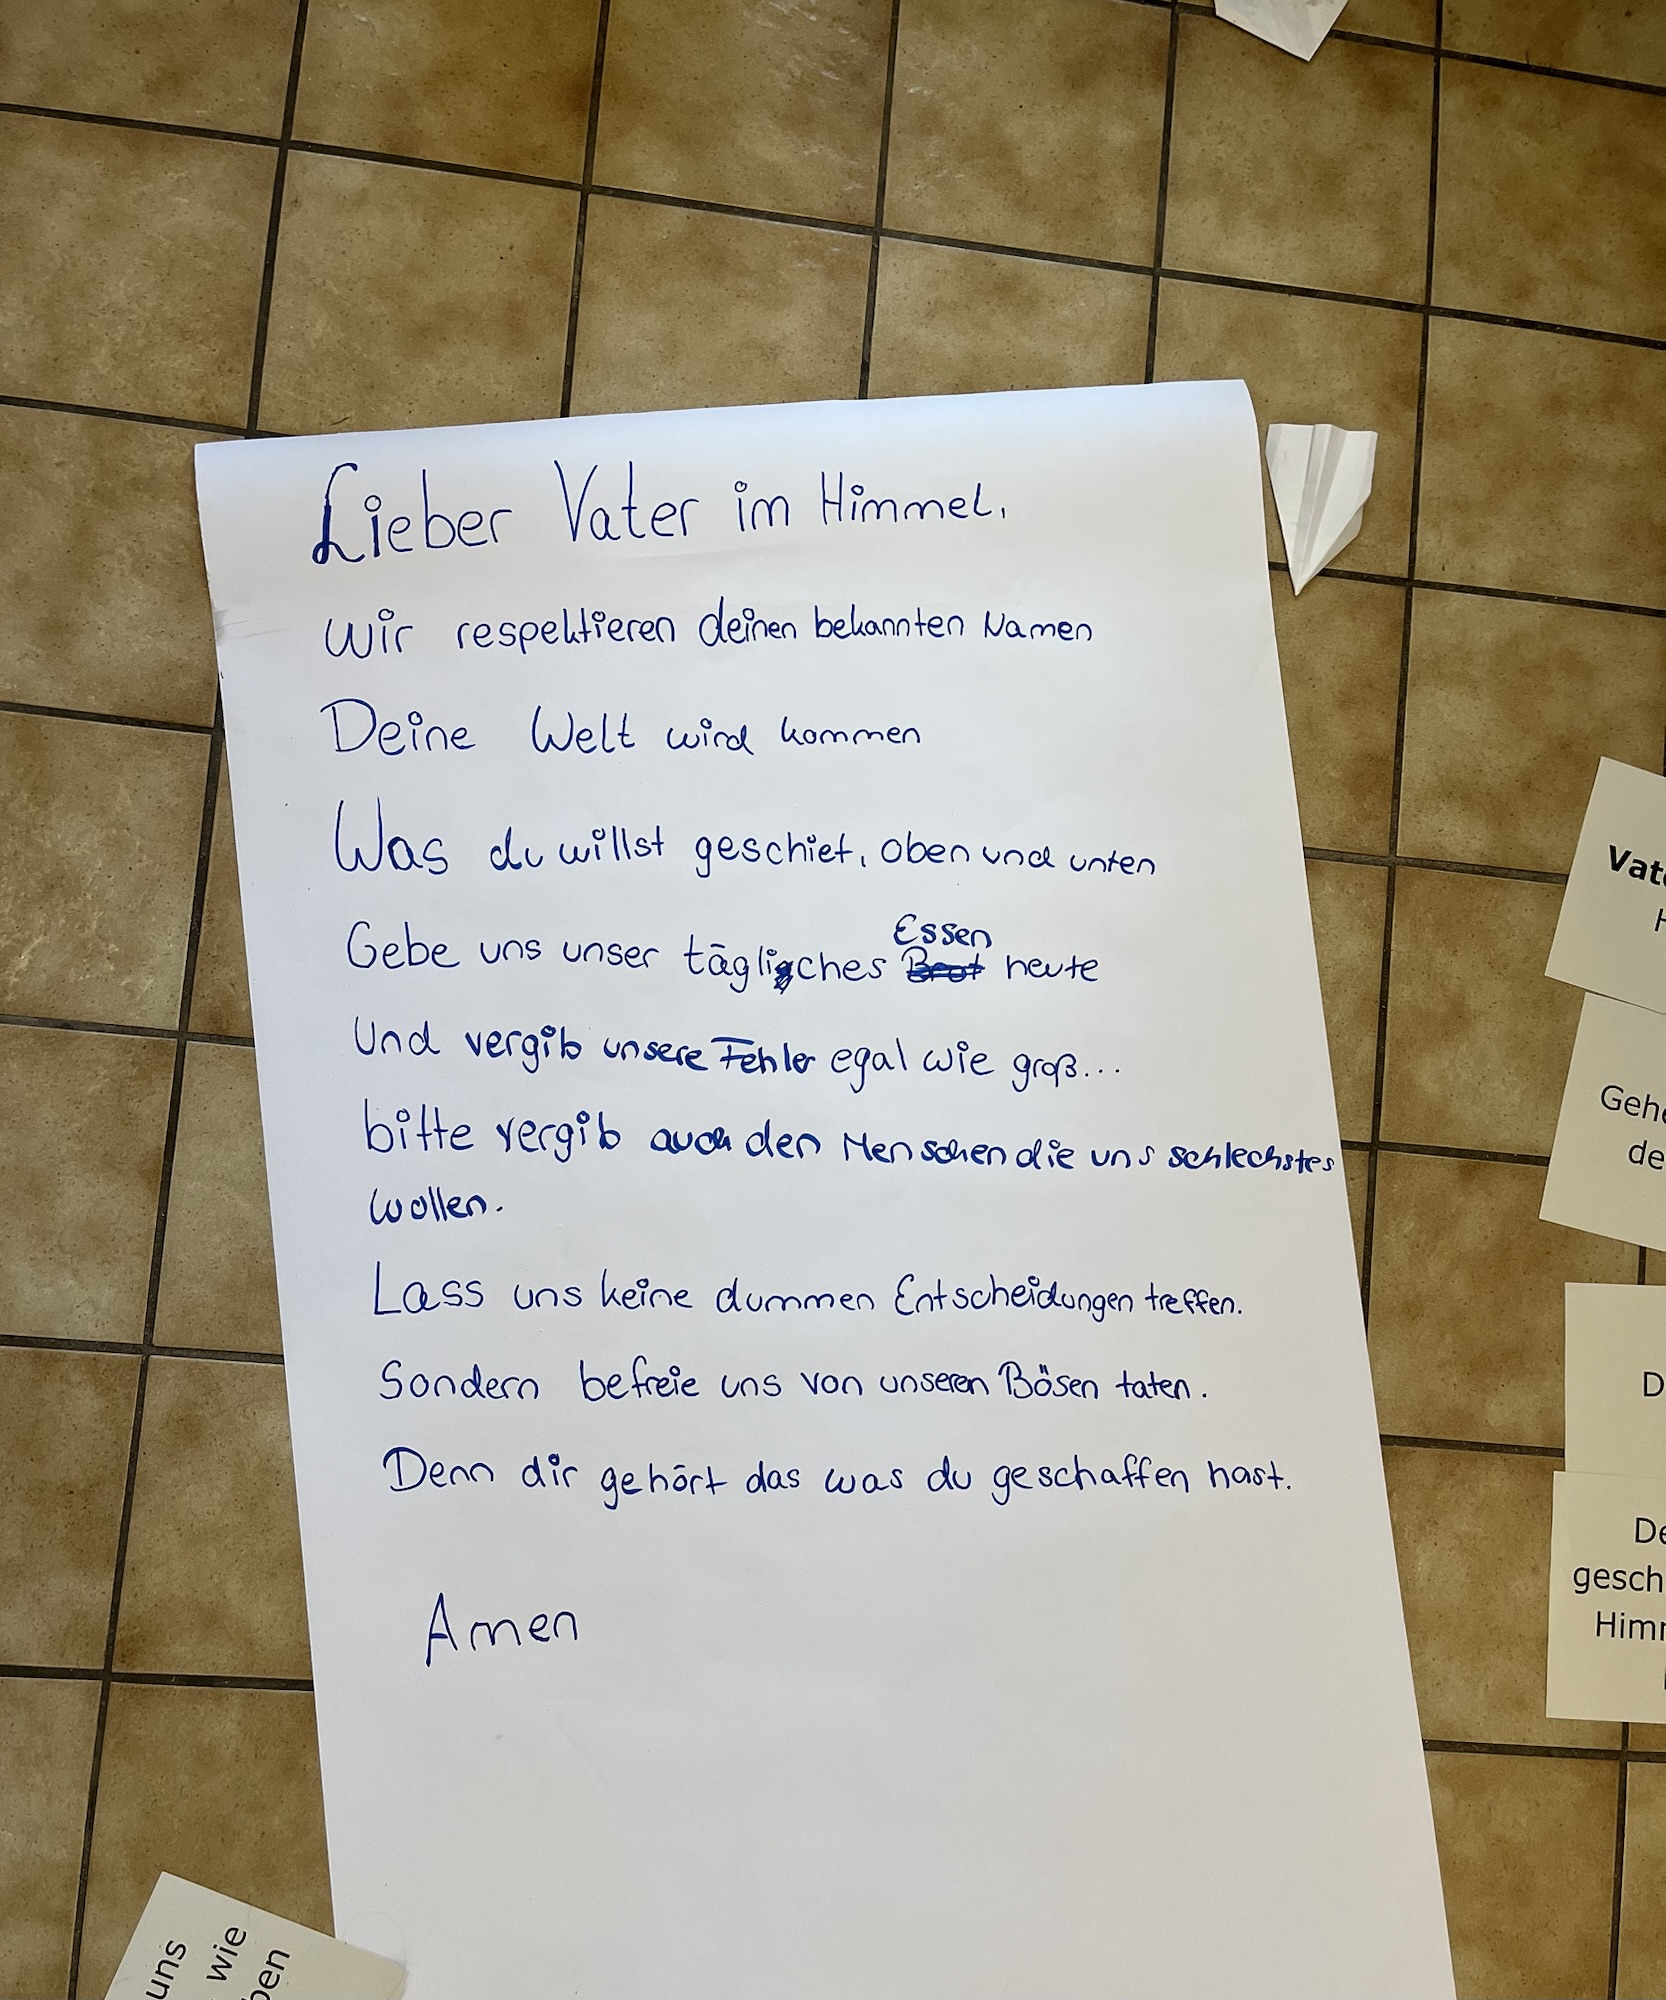 Lieber Vater im Himmel,
Wir respektieren deinen bekannten Namen
Deine Welt wird kommen
Was du willst geschiet, oben und unten
Gebe uns unser tägliches Essen heute
Und vergib unsere Fehler egal wie groß...
bitte vergib auch den Menschen die uns schlechstes
wollen.
Lass uns keine dummen Entscheidungen treffen.
Sondern befreie uns von unseren Bösen taten.
Denn dir gehört das was du geschaffen hast.
Amen
uns
wie